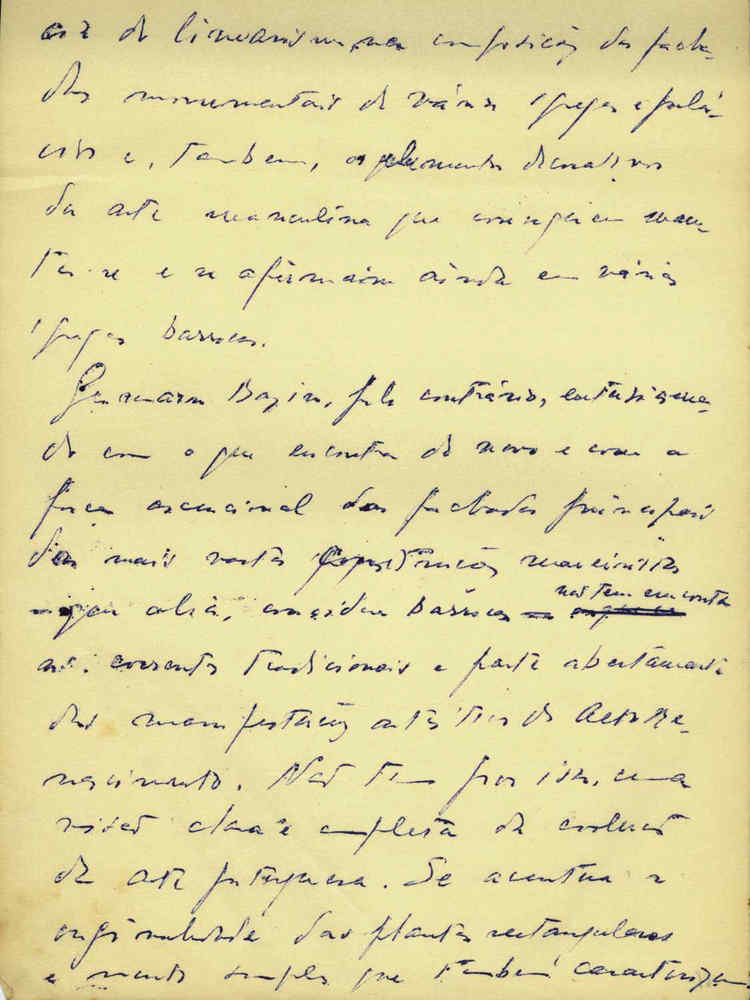 do linearismo na composição das facha-
das monumentais de várias igrejas e palá-
cios e, também, os elementos decorativos
da arte manuelina que conseguem man-
ter-se e se afirmam ainda em várias
igrejas barrocas.
Germain Bazin, pelo contrário, entusiasma-
do com o que encontra de novo e com a
força ascencional das fachadas principais
das mais vastas construções maneiristas
que aliás, considera barrocas não tem em conta
as correntes tradicionais e parte abertamente
das manifestações artísticas do Alto Re-
nascimento. Não tem por isso, uma
visão clara e completa da evolução
da arte portuguesa. Se acentua a
originalidade das plantas rectangulares
e muito simples que também caracterizam